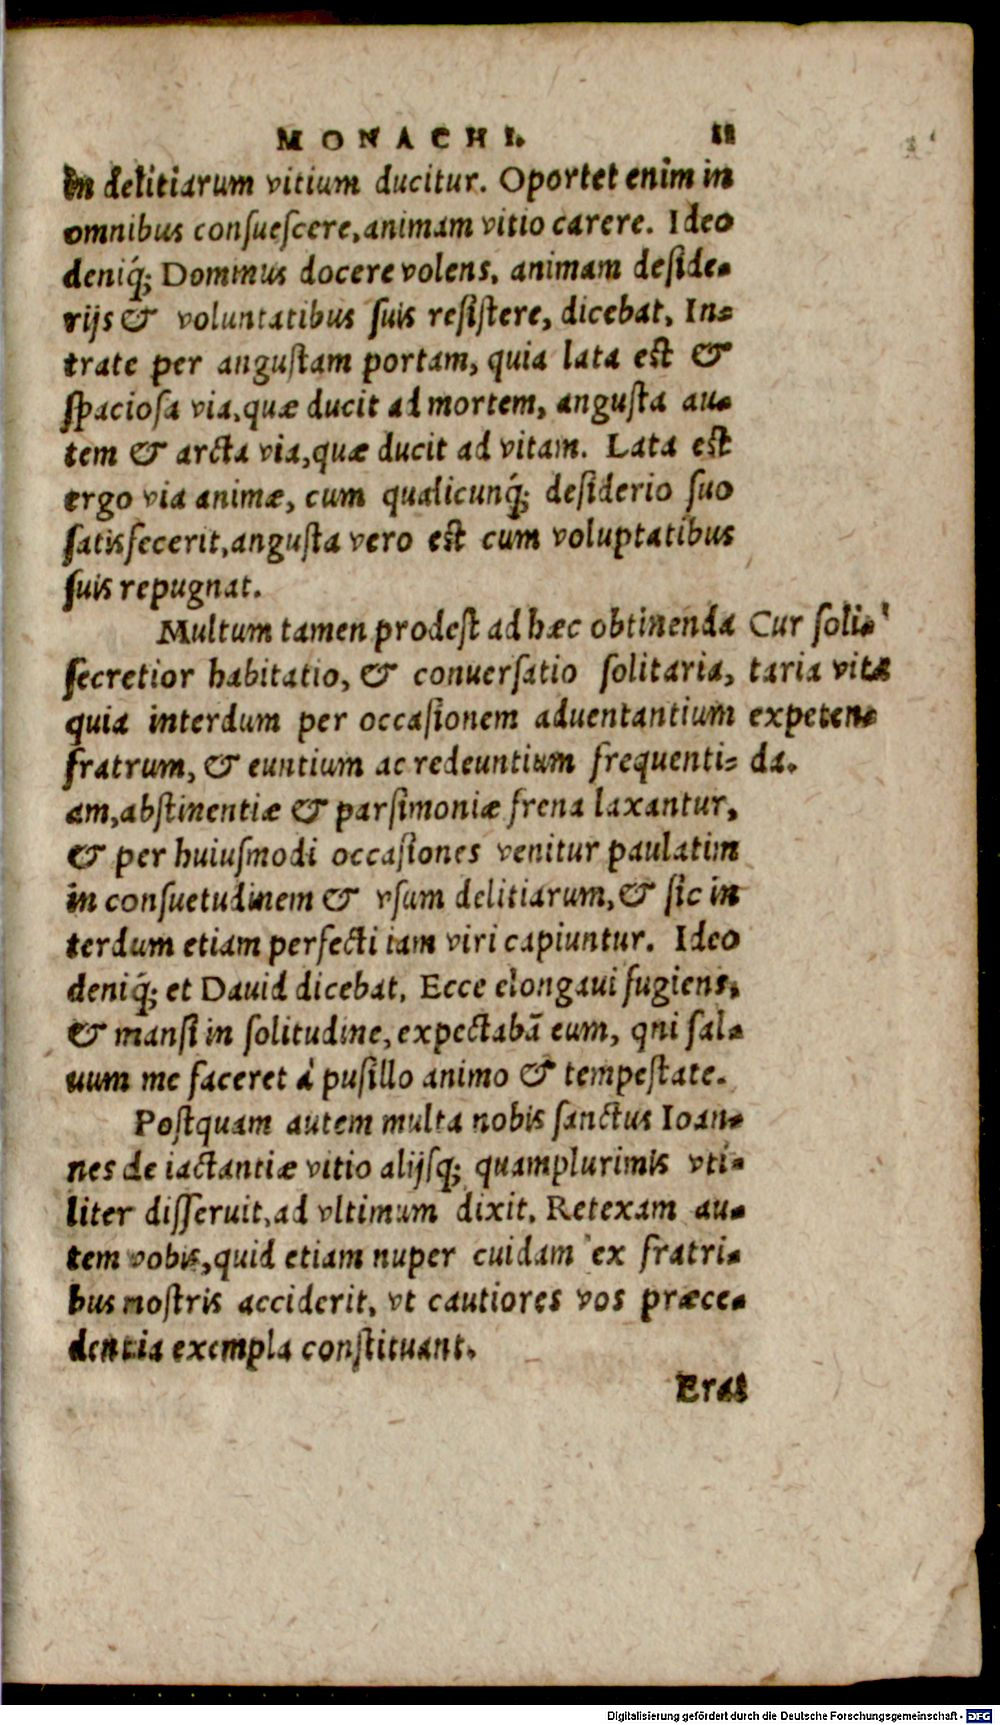 MONACHI. 11
in delitiarum vitium ducitur. Oportet enim in
omnibus consuescere, animam vitio carere. Ideo
deniq́; Dominus docere volens, animam deside-
rijs & voluntatibus suis resistere, dicebat, In-
trate per angustam portam, quia lata est &
spaciosa via, quæ ducit ad mortem, angusta au-
tem & arcta via, quæ ducit ad vitam. Lata est
ergo via animæ, cum qualicunq́; desiderio suo
satisfecerit, angusta vero est cum voluptatibus
suis repugnat.
Multum tamen prodest ad hæc obtinenda
secretior habitatio, & conuersatio solitaria,
quia interdum per occasionem aduentantium
fratrum, & euntium ac redeuntium frequenti-
am, abstinentiæ & parsimoniæ frena laxantur,
& per huiusmodi occasiones venitur paulatim
in consuetudinem & vsum delitiarum, & sic in
terdum etiam perfecti iam viri capiuntur. Ideo
deniq́; et Dauid dicebat, Ecce elongaui fugiens,
& mansi in solitudine, expectabā eum, qni sal-
uum me faceret à pusillo animo & tempestate.
Cur soli-
taria vita
expeten-
da.
Postquam autem multa nobis sanctus Ioan-
nes de iactantiæ vitio alijsq; quamplurimis vti-
liter disseruit, ad vltimum dixit, Retexam au-
tem vobis, quid etiam nuper cuidam ex fratri-
bus nostris acciderit, vt cautiores vos præce-
dentia exempla constituant.
Erat
Digitalisierung gefördert durch die Deutsche Forschungsgemeinschaft - DFG